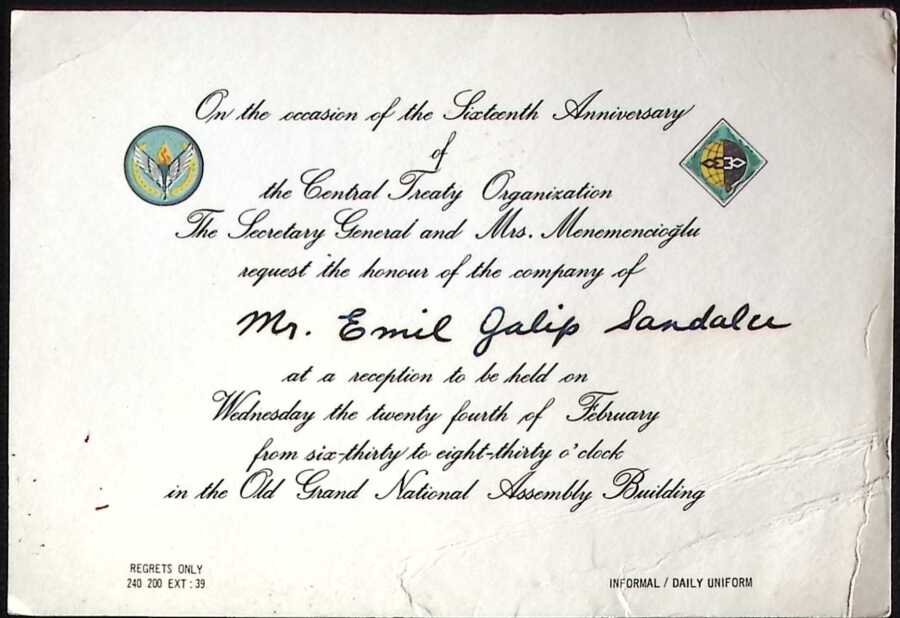 On the occasion of the Sixteenth Anniversary
of
the Central Treaty Organization
The Secretary General and Mrs. Menemencioğlu
request the honour of the company of
Mr. Emil Galip Sandalcı
at a reception to be held on
Wednesday the twenty fourth of February
from six-thirty to eight-thirty o'clock
in the Old Grand National Assembly Building
REGRETS ONLY
240 200 EXT : 39
INFORMAL / DAILY UNIFORM